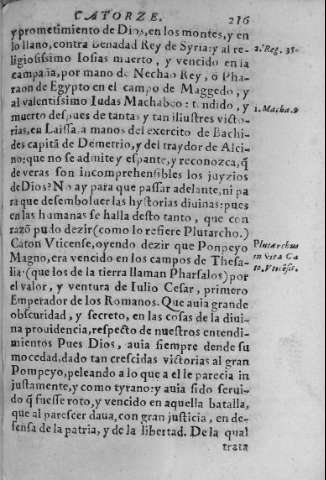 CATORZE. 216
y prometimiento de Dios, en los montes, y en
lo llano, contra Benadad Rey de Syria: y al re-
2. Reg. 35.
ligiosissimo Iosias muerto, y vencido en la
campaña, por mano de Nechao Rey, ò Pha-
raon de Egypto en el campo de Maggedo, y
al valentissimo Iudas Machabeo: tendido, y
1. Macha. 9
muerto despues de tantas y tan illustres victo-
rias, en Laissa a manos del exercito de Bachi-
des capitã de Demetrio, y del traydor de Alci-
no: que no se admire y espante, y reconozca, q̃
de veras son incomprehensibles los juyzios
de Dios? No ay para que passar adelante, ni pa
ra que desemboluer las hystorias diuinas: pues
en las humanas se halla desto tanto, que con
razõ pudo dezir (como lo refiere Plutarcho.)
Caton Vticense, oyendo dezir que Ponpeyo
Plutarchus
Magno, era vencido en los campos de Thesa-
in vita Ca
lia (que los de la tierra llaman Pharsalos) por
to. Vticẽsis.
el valor, y ventura de Iulio Cesar, primero
Emperador de los Romanos. Que auia grande
obscuridad, y secreto, en las cosas de la diui-
na prouidencia, respecto de nuestros entendi-
mientos Pues Dios, auia siempre dende su
mocedad, dado tan crescidas victorias al gran
Pompeyo, peleando a lo que a el le parecia in
justamente, y como tyrano: y auia sido serui-
do q̃ fuesse roto, y vencido en aquella batalla,
que al parescer daua, con gran justicia, en de-
fensa de la patria, y de la libertad. De la qual
trata